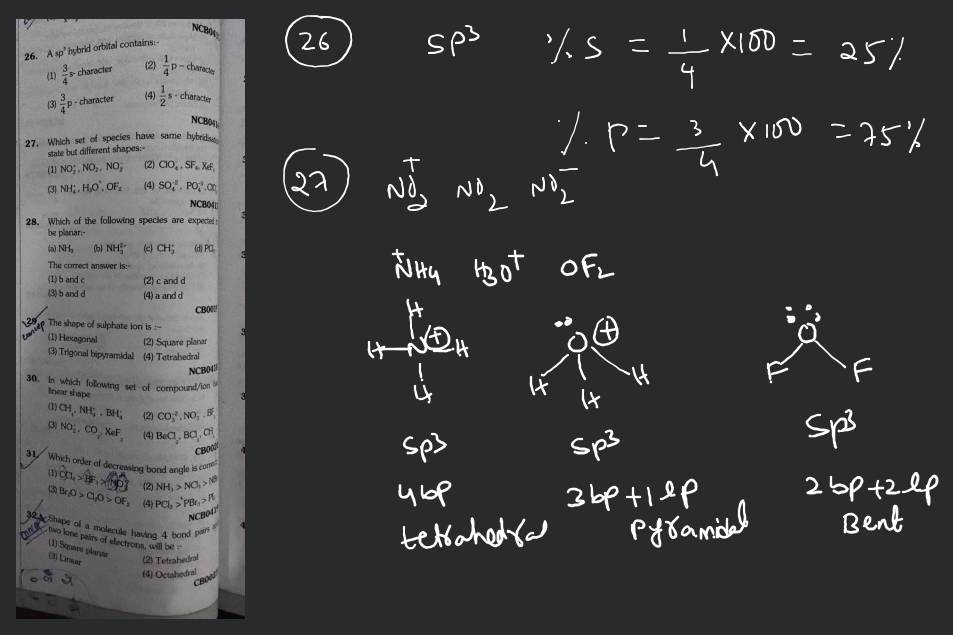 NCB04
26. A sp³ hybrid orbital contains:-
(1) 3/4 s- character (2) 1/4 p - character
(3) 3/4 p - character (4) 1/2 s - character
NCB04
27. Which set of species have same
state but different shapes:-
(1) NO₂⁺, NO₂, NO₂⁻ (2) ClO₄⁻, SF₄, XeF₄
(3) NH₄⁺, H₃O⁺, OF₂ (4) SO₄⁻², PO₄⁻³,
NCB04
28. Which of the following species are expected
be planar:-
(a) NH₃ (b) (c) CH₃⁺ (d)
The correct answer is:-
(1) b and c (2) c and d
(3) b and d (4) a and d
CB00
29. The shape of sulphate ion is :-
(1) Hexagonal (2) Square planar
(3) Trigonal bipyramidal (4) Tetrahedral
NCB04
30. In which following set of compound/ion
linear shape
(1) CH₄, NH₄⁺, BH₄⁻ (2) CO₃⁻², NO₃⁻, BF₃
(3) NO₂⁺, CO₂, XeF₂ (4) BeCl₂, BCl₃, CH₄
CB00
31. Which order of decreasing bond angle is correct
(2) NH₃ > NCl₃ >
(3) Br₂O > Cl₂O > OF₂ (4) PCl₃ > PBr₃ >
NCB04
32. Shape of a molecule having 4 bond pairs
two lone pairs of electrons, will be :-
(1) Square planar (2) Tetrahedral
(3) Linear (4) Octahedral
CB00
26 SP3 % S = 1/4 X100 = 25%
% P = 3/4 X 100 = 75%
27 NO₂⁺ NO₂ NO₂⁻
⁺NH4 H3O⁺ OF2
H
H N ⊕ H O ⊕ O
H H H F F
H H
Sp3 sp3 Sp3
4bp 3bp+1lp 2bp+2lp
tetrahedral Pyramidal Bent